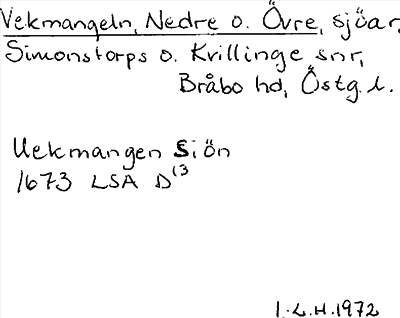 Vekmangeln, Nedre o. Övre, sjöar,
Simonstorps o. Krillinge snr,
Bråbo hd, Östg. l.
Uekmangen Siön
1673 LSA D¹³
I.L.H. 1972